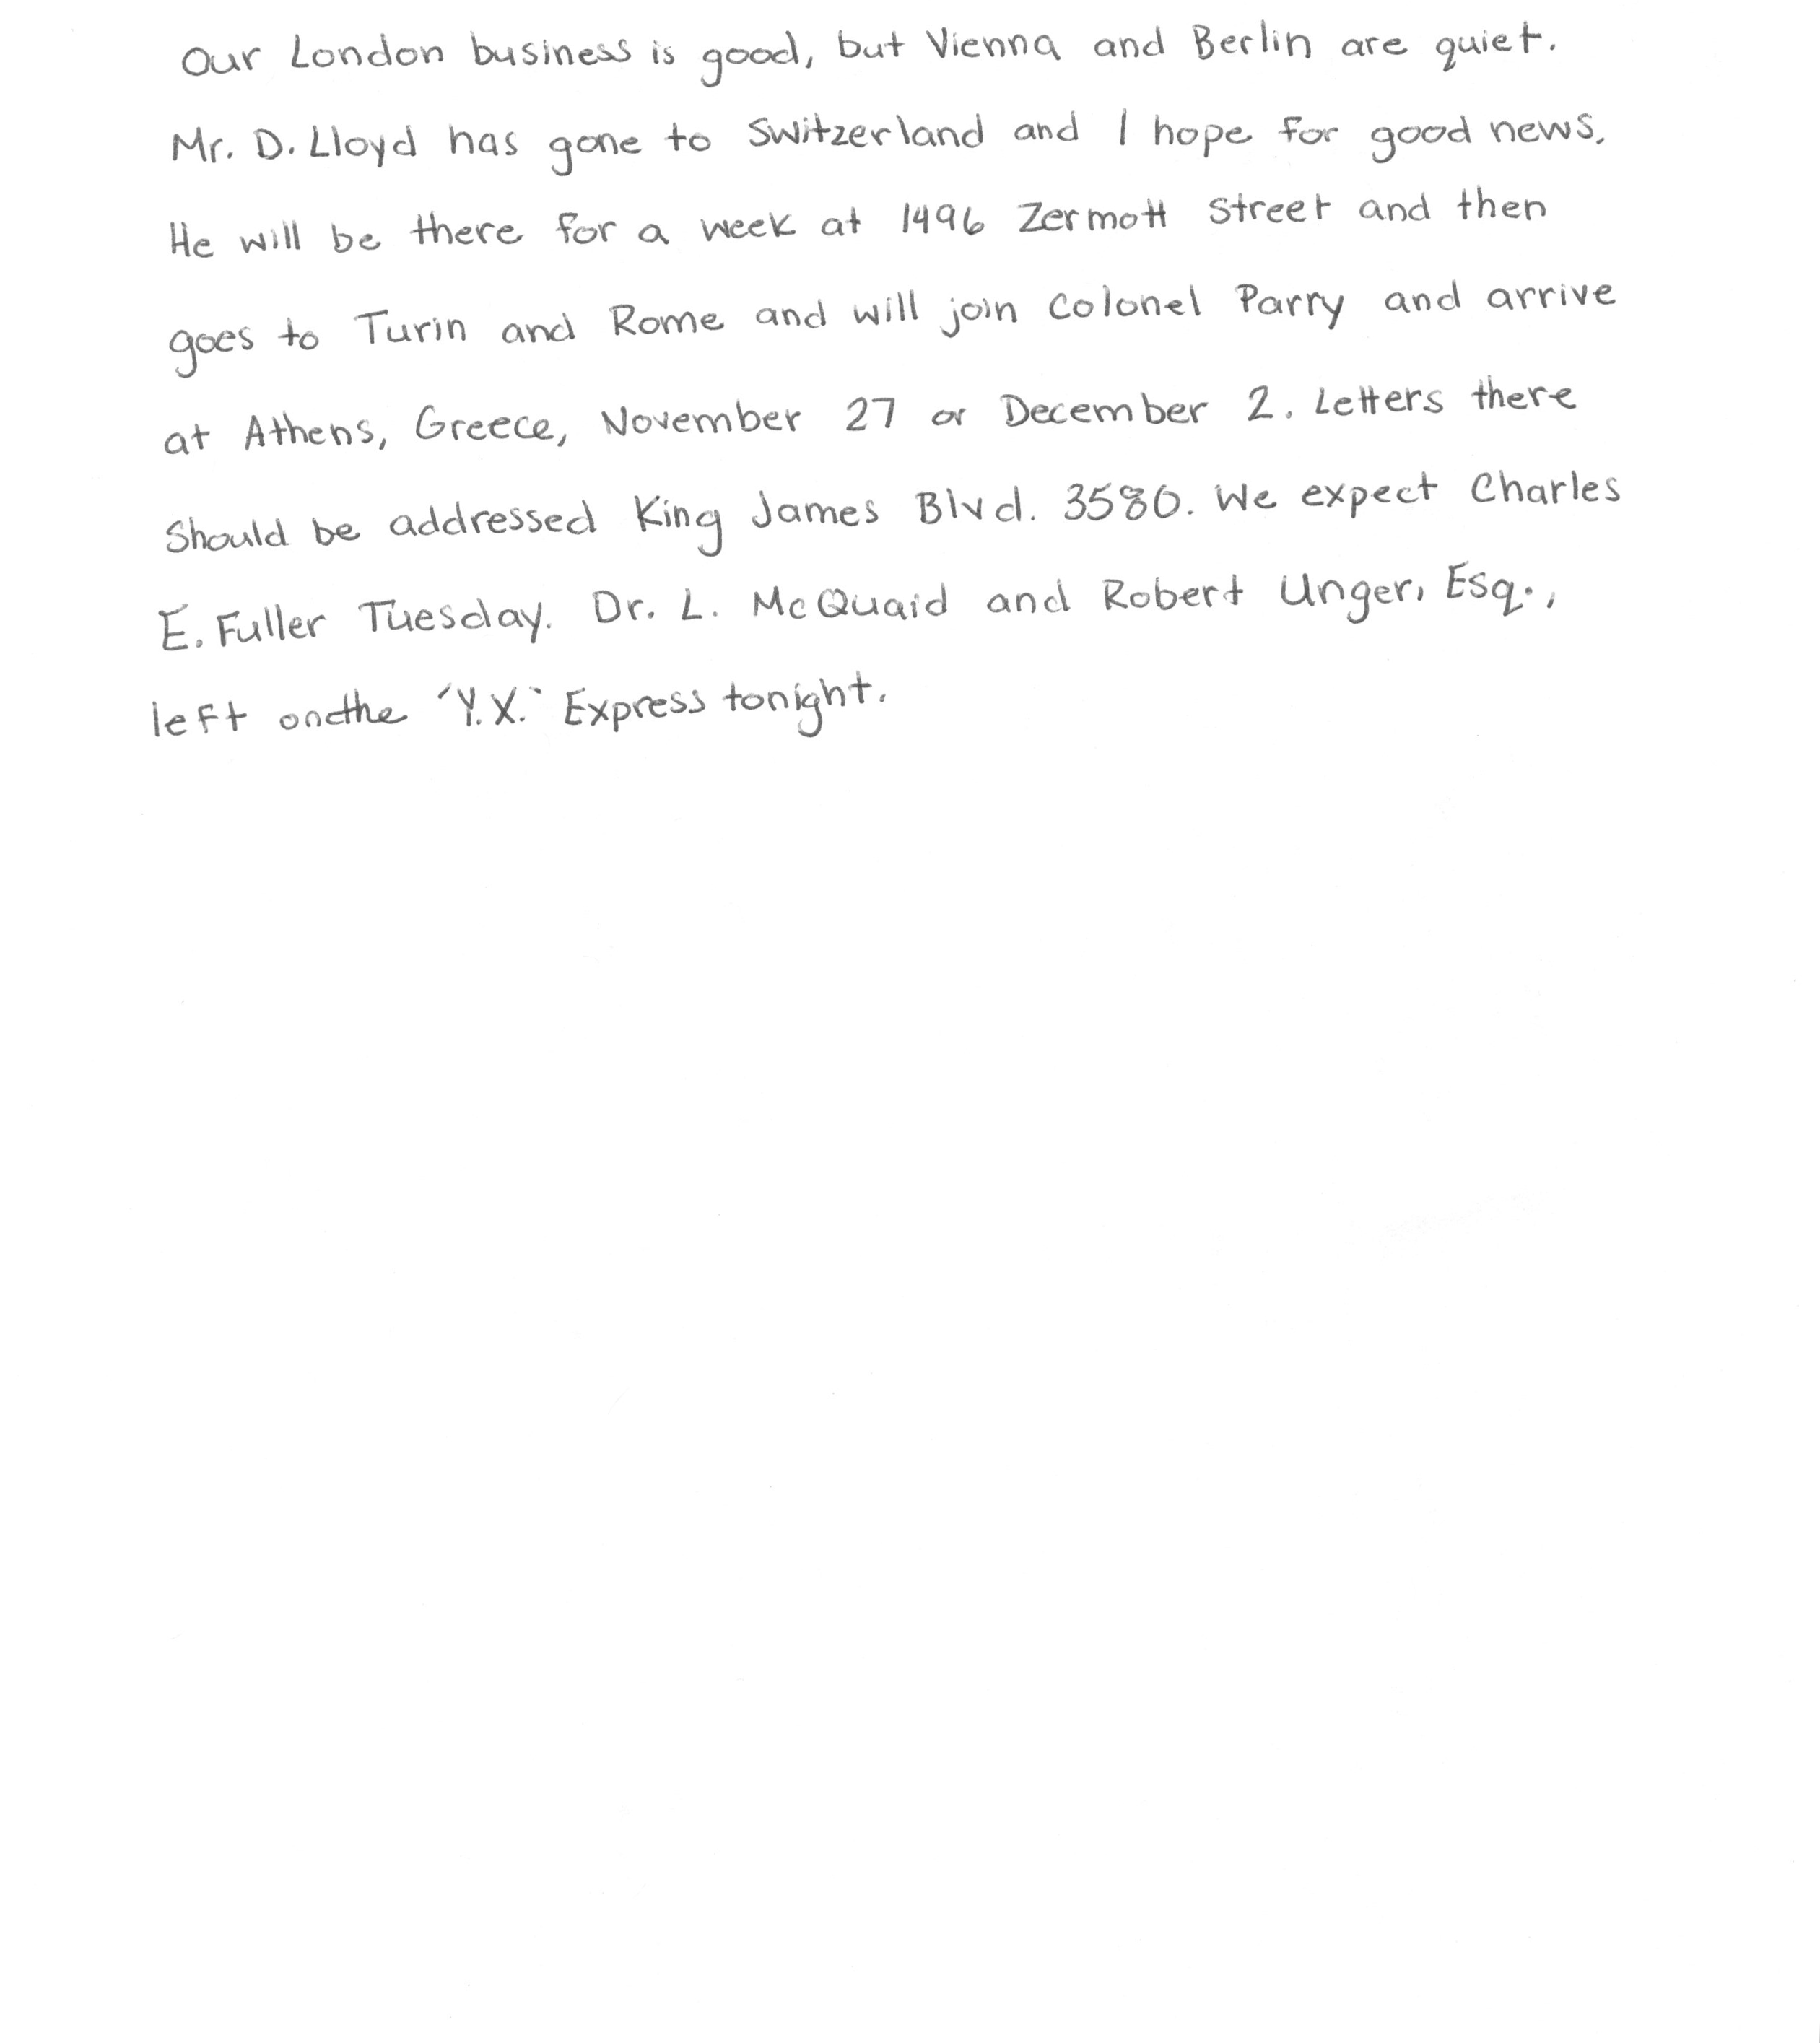 Our London business is good, but Vienna and Berlin are quiet.
Mr. D. Lloyd has gone to Switzerland and I hope for good news.
He will be there for a week at 1496 Zermott Street and then
goes to Turin and Rome and will join Colonel Parry and arrive
at Athens, Greece, November 27 or December 2. Letters there
Should be addressed King James Blvd. 3580. We expect Charles
E. Fuller Tuesday. Dr. L. McQuaid and Robert Unger, Esq.,
left on the 'Y.X.' Express tonight.